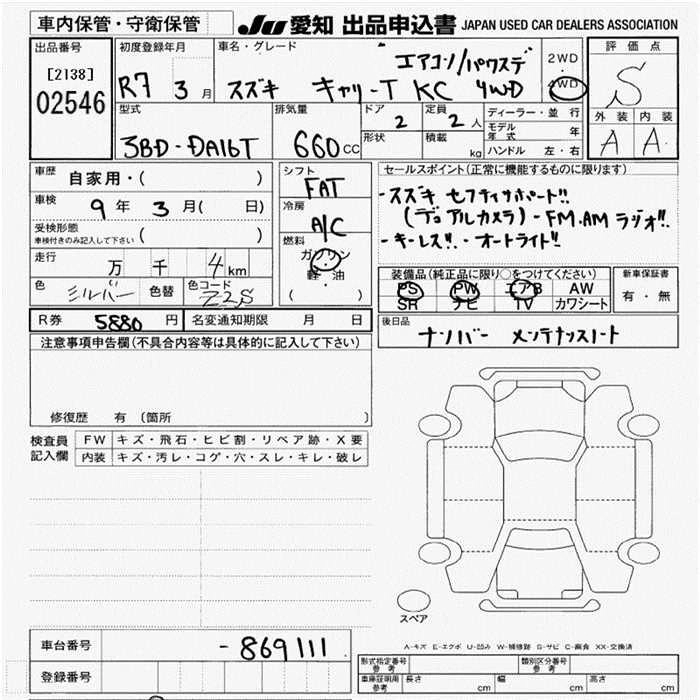 車内保管・守衛保管
JU 愛知 出品申込書 JAPAN USED CAR DEALERS ASSOCIATION
出品番号
[2138]
02546
初度登録年月
R7 3 月
車名・グレード
エアコン/パワステ
スズキ キャリーT KC 4WD
2WD
4WD
評価点
S
外装 内装
A A
型式
3BD-DA16T
排気量
660 cc
ドア
2
形状
定員
2 人
積載
kg
ディーラー・並行
モデル年式 年
ハンドル 左・右
車歴
自家用・( )
車検
9 年 3 月( 日)
受検形態
車検付きのみ記入して下さい ( )
走行
万 千 4 km
色 シルバー 色替 色コード Z2S
シフト
FAT
冷房
A/C
燃料
ガソリン
軽・油
( )
セールスポイント(正常に機能するものに限ります)
・スズキ セフティサポート!!
(デュアルカメラ)・FM.AMラジオ!!
・キーレス!!・オートライト!!
装備品(純正品に限り○をつけてください)
PS PW エアB AW
SR ナビ TV カワシート
新車保証書
有・無
R券 5880 円 名変通知期限 月 日
後日品
ナンバー メンテナンスノート
注意事項申告欄(不具合内容等は具体的に記入して下さい)
修復歴 有 (箇所
検査員記入欄
FW キズ・飛石・ヒビ割・リペア跡・X要
内装 キズ・汚レ・コゲ・穴・スレ・キレ・破レ
スペア
A-キズ E-エクボ U-凹み W-補修跡 S-サビ C-腐食 XX-交換済
車台番号 -869111
登録番号
型式指定番号 参考
類別区分番号 参考
車庫証明用 参考 長さ cm 幅 cm 高さ cm